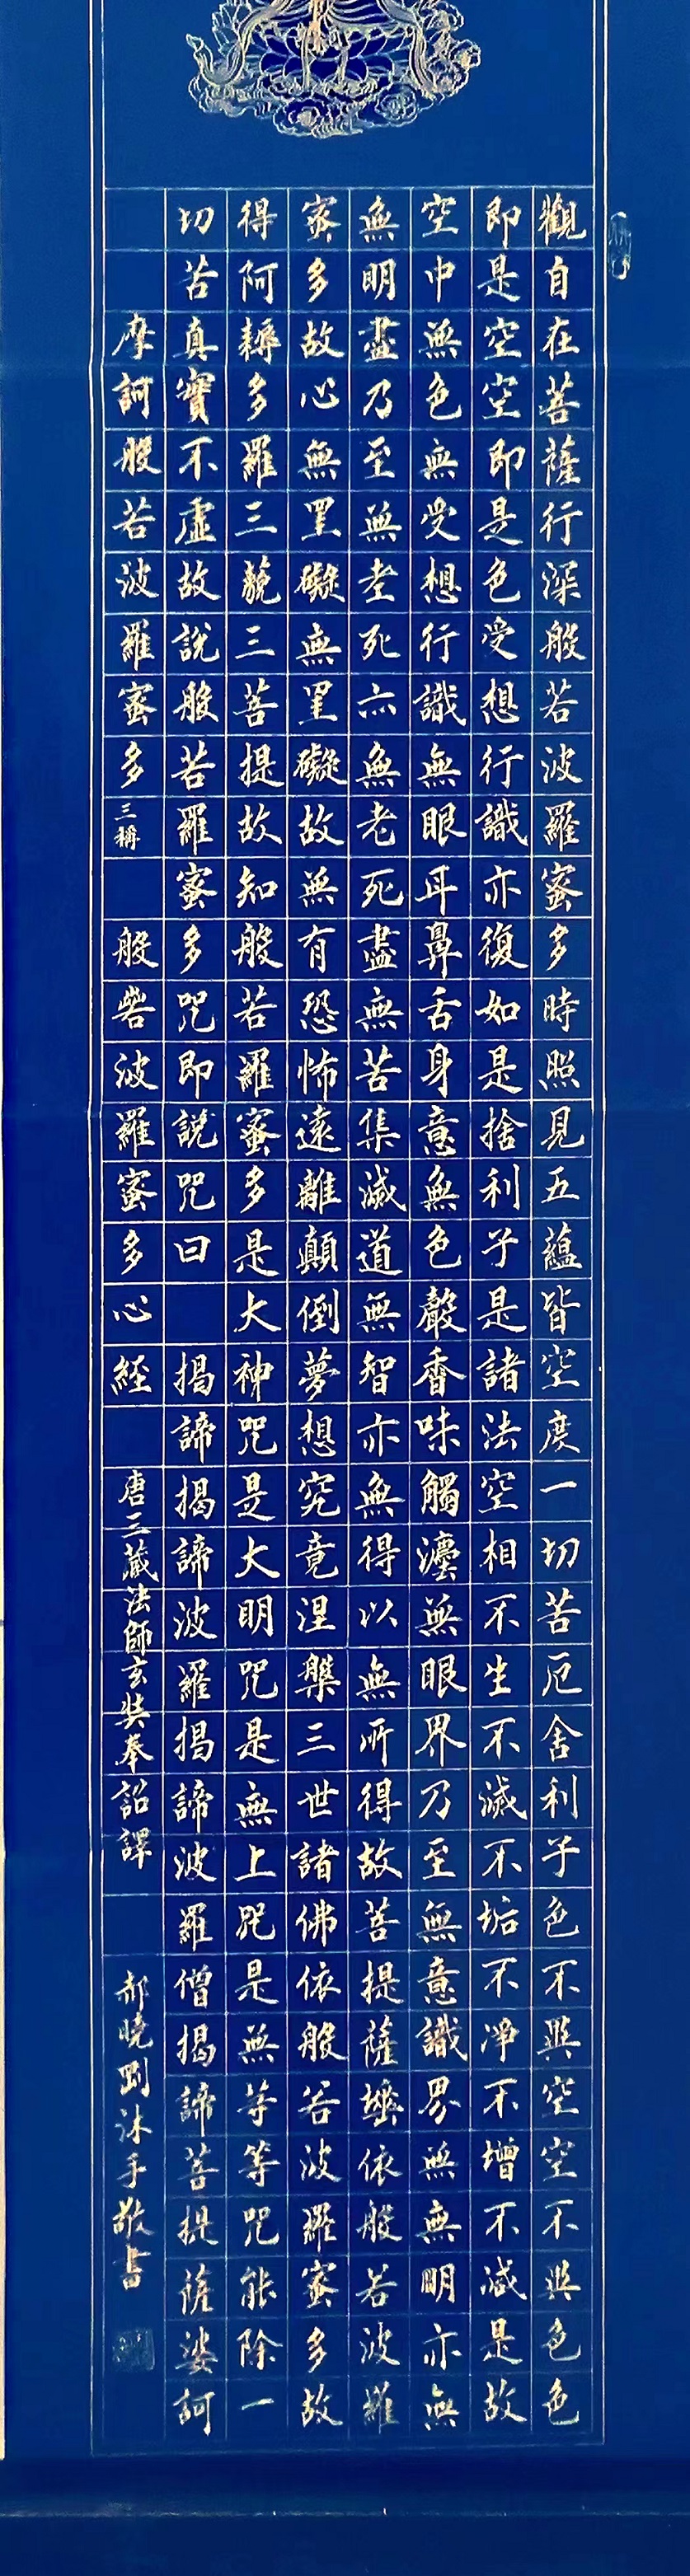 觀自在菩薩行深般若波羅蜜多時照見五蘊皆空度一切苦厄舍利子色不異空空不異色色
即是空空即是色受想行識亦復如是捨利子是諸法空相不生不滅不垢不淨不增不減是故
空中無色無受想行識無眼耳鼻舌身意無色聲香味觸灋無眼界乃至無意識界無無明亦無
無明盡乃至無老死亦無老死盡無苦集滅道無智亦無得以無所得故菩提薩埵依般若波羅
蜜多故心無罣礙無罣礙故無有恐怖遠離顛倒夢想究竟涅槃三世諸佛依般若波羅蜜多故
得阿耨多羅三藐三菩提故知般若羅蜜多是大神咒是大明咒是無上咒是無等等咒能除一
切苦真實不虛故說般若羅蜜多咒即說咒曰 揭諦揭諦波羅揭諦波羅僧揭諦菩提薩婆訶
摩訶般若波羅蜜多 三稱 般若波羅蜜多心經 唐三藏法師玄奘奉詔譯 郝曉剛沐手敬書